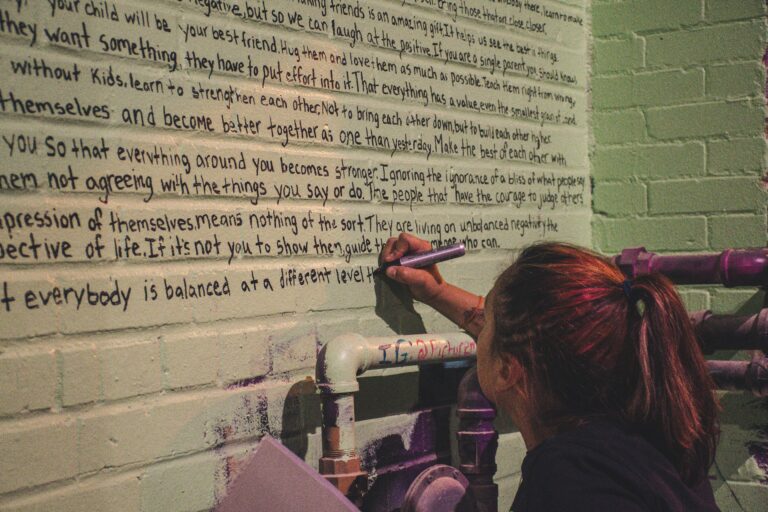 ering those that an close closer.
negative, but so we can laugh at the positive. If you are a single parent, you should know,
your child will be your best friend. Hug them and love them as much as possible. Teach them right from wrong,
they want something, they have to put effort into it. That everything has a value, even the smallest
without Kids, learn to strengthen each other, Not to bring each other down, but to build each other higher
themselves and become better together as one than yesterday. Make the best of each other with
you So that everything around you becomes stronger. Ignoring the ignorance of a bliss of what people say
hem not agreeing with the things you say or do. The people that have the courage to judge others
mpression of themselves, means nothing of the sort. They are living on unbalanced negativity the
pective of life. If it's not you to show them, guide who can.
t everybody is balanced at a different level
IG: